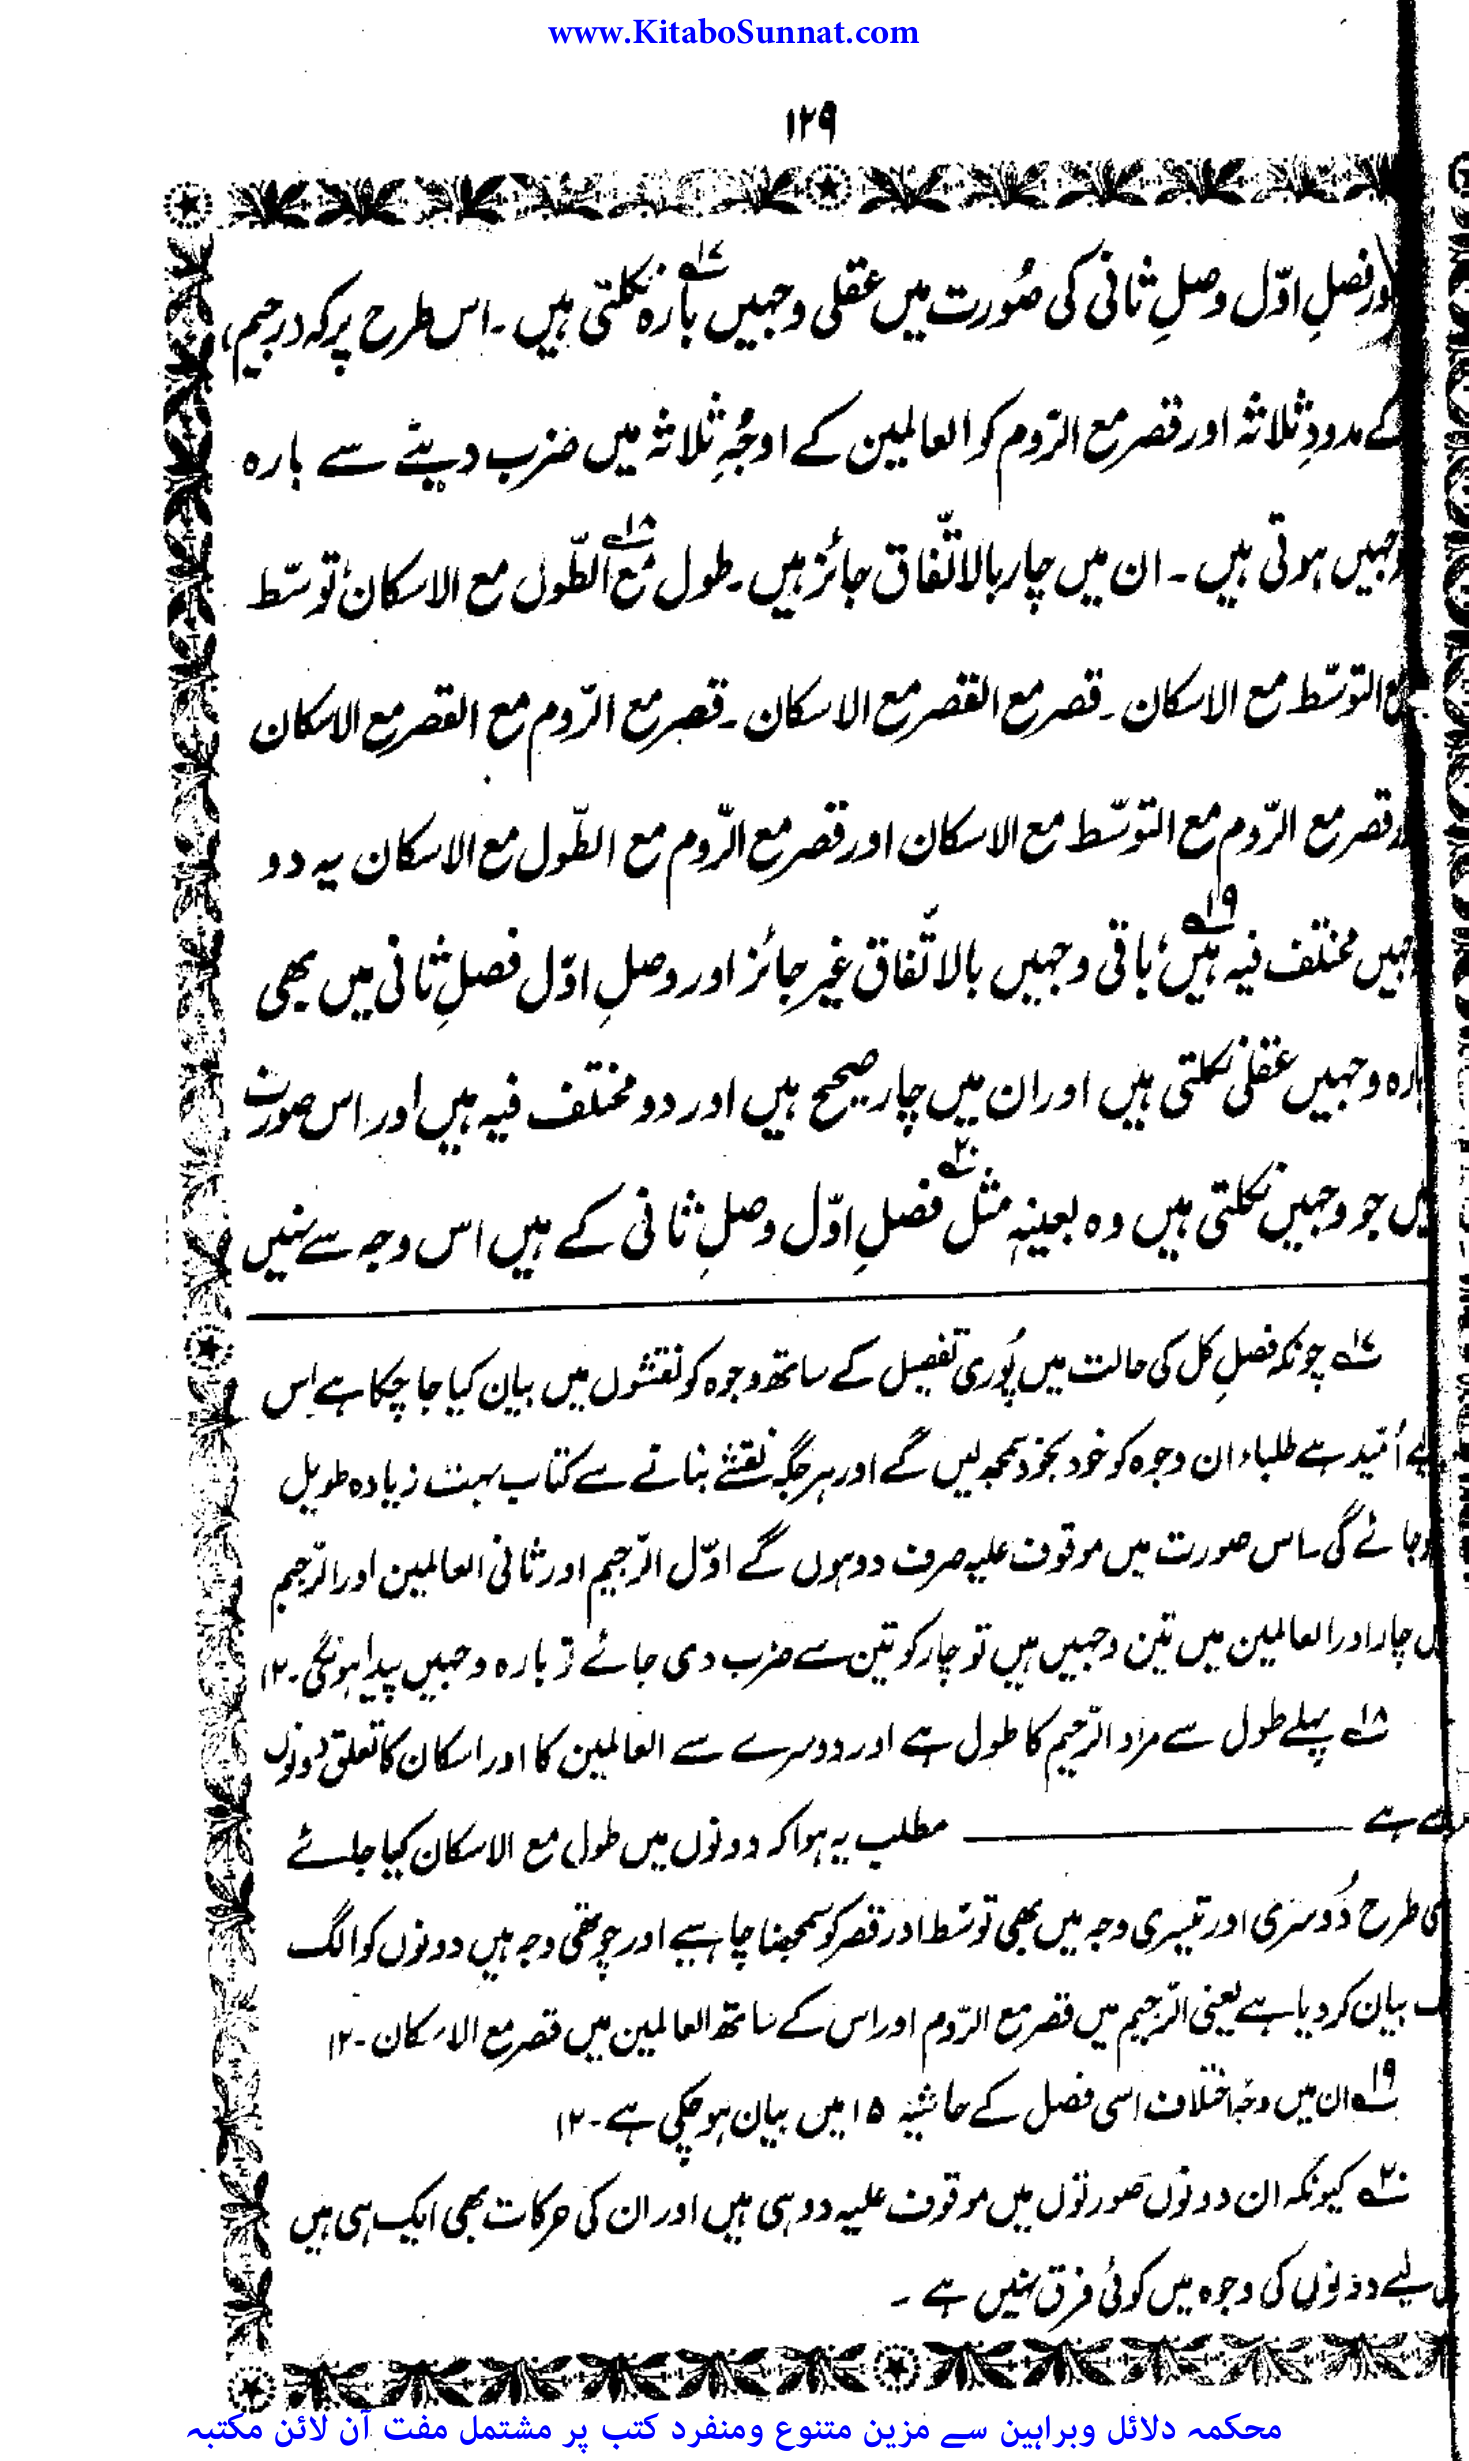 www.KitaboSunnat.com
۱۲۹
اور فصلِ اوّل وصلِ ثانی کی صُورت میں عقلی وجہیں بارہ۱۷؎ نکلتی ہیں۔ اس طرح پر کہ درجیم،
کے مدودِ ثلاثہ اور قصر مع الرّوم کو العالمین کے اوجُہِ ثلاثہ میں ضرب دینے سے بارہ
وجہیں ہوتی ہیں۔ ان میں چار بالاتّفاق جائز ہیں۔ طول مع۱۸؎ الطّول مع الاسکان، توسّط
مع التوسّط مع الاسکان۔ قصر مع القصر مع الاسکان۔ قصر مع الرّوم مع القصر مع الاسکان
اور قصر مع الرّوم مع التوسّط مع الاسکان اور قصر مع الرّوم مع الطّول مع الاسکان یہ دو
وجہیں مختلف فیہ ہیں۱۹؎، باقی وجہیں بالاتّفاق غیر جائز اور وصلِ اوّل فصلِ ثانی میں بھی
بارہ وجہیں عقلی نکلتی ہیں اور ان میں چار صحیح ہیں اور دو مختلف فیہ ہیں اور اس صورت
میں جو وجہیں نکلتی ہیں وہ بعینہٖ مثل۲۰؎ فصلِ اوّل وصلِ ثانی کے ہیں اس وجہ سے نہیں
۱۷؎ چونکہ فصلِ کل کی حالت میں پُوری تفصیل کے ساتھ وجوہ کو نقشوں میں بیان کیا جا چکا ہے اس
لیے اُمّید ہے طلباء ان وجوہ کو خود بخود سمجھ لیں گے اور ہر جگہ نقشے بنانے سے کتاب بہت زیادہ طویل
ہوجائے گی۔ اس صورت میں موقوف علیہ صرف دو ہوں گے اوّل الرّجیم اور ثانی العالمین اور الرّجیم
میں چار اور العالمین میں تین وجہیں ہیں تو چار کو تین سے ضرب دی جائے تو بارہ وجہیں پیدا ہونگی۔۱۲
۱۸؎ پہلے طول سے مراد الرّجیم کا طول ہے اور دوسرے سے العالمین کا اور اسکان کا تعلق دونوں
سے ہے ــــــــــ مطلب یہ ہوا کہ دونوں میں طول مع الاسکان کیا جائے
اسی طرح دُوسری اور تیسری وجہ میں بھی توسّط اور قصر کو سمجھنا چاہیے اور چوتھی وجہ میں دونوں کو الگ
الگ بیان کر دیا ہے یعنی الرّجیم میں قصر مع الرّوم اور اس کے ساتھ العالمین میں قصر مع الاسکان۔۱۲
۱۹؎ ان میں وجہ اختلاف اسی فصل کے حاشیہ ۱۵ میں بیان ہوچکی ہے۔۱۲
۲۰؎ کیونکہ ان دونوں صورتوں میں موقوف علیہ دو ہی ہیں اور ان کی حرکات بھی ایک ہی ہیں
اس لیے دونوں کی وجوہ میں کوئی فرق نہیں ہے۔
محکمہ دلائل وبراہین سے مزین متنوع ومنفرد کتب پر مشتمل مفت آن لائن مکتبہ